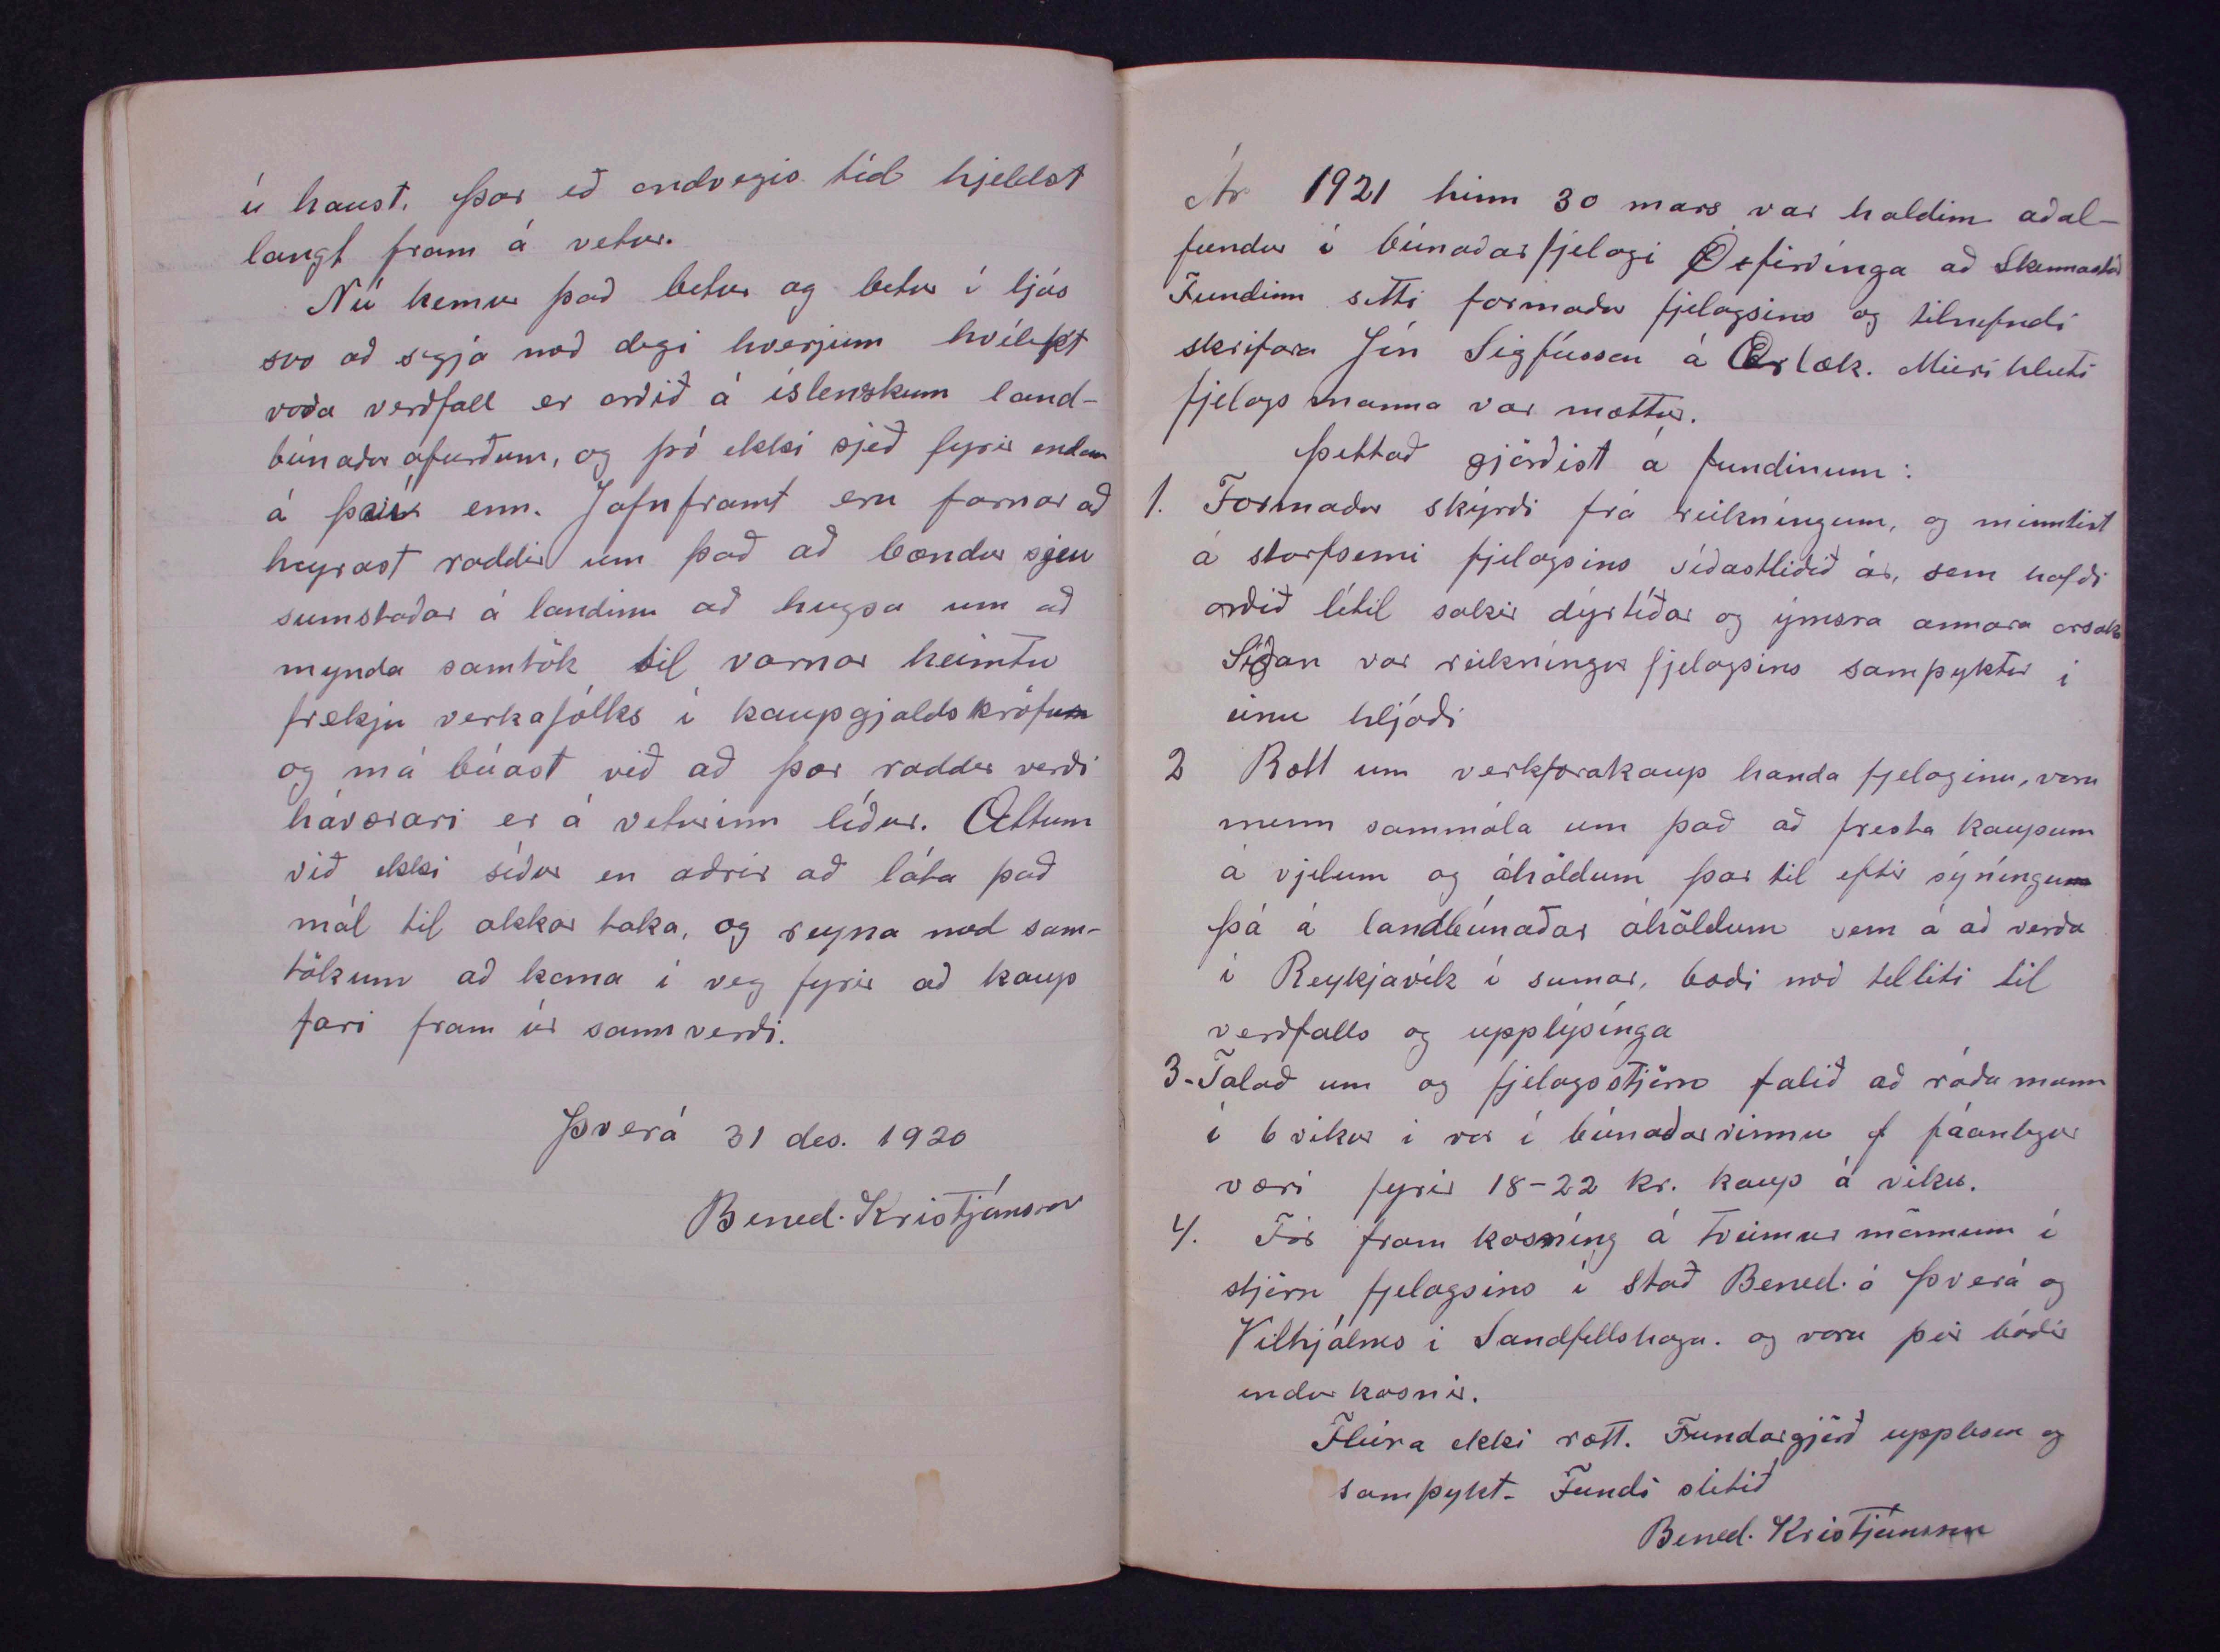 í haust. Þar eð öndvegis tíð hjeldst
langt fram á vetur.
Nú kemur það betur og betur í ljós
svo að segja með degi hverjum hvílíkt
voða verðfall er orðið á íslenzkum land-
búnaðar afurðum, og þó ekki sjeð fyrir endan
á því enn. Jafnframt eru farnar að
heyrast raddir um það að bændur sjeu
sumstaðar á landinu að hugsa um að
mynda samtök til varnar heimtu
frekju verkafólks í kaupgjaldskröfum
og má búast við að þær raddir verði
háværari er á veturinn líður. Ættum
við ekki síður en aðrir að láta það
mál til okkar taka, og reyna með sam-
tökum að koma í veg fyrir að kaup
fari fram úr sannverði.
Þverá 31 des. 1920
Bened. Kristjánsson
Ár 1921 hinn 30 mars var haldinn aðal-
fundur í búnaðarfjelagi Öxfirðinga að Skinnastað
Fundinn setti formaður fjelagsins og tilnefndi
skrifara Jón Sigfússon á Ærlæk. Meiri hluti
fjelagsmanna var mættur.
Þettað gjörðist á fundinum:
1. Formaður skýrði frá reikníngum, og minntist
á starfsemi fjelagsins síðastliðið ár, sem hafði
orðið lítil sakir dýrtíðar og ýmsra annara orsaka
Síðan var reikníngur fjelagsins samþyktur í
einu hljóði
2 Rætt um verkfærakaup handa fjelaginu, voru
menn sammála um það að fresta kaupum
á vjelum og áhöldum þar til eftir sýníngum
þá á landbúnaðar áhöldum sem á að verða
í Reykjavík í sumar, bæði með tilliti til
verðfalls og upplýsínga
3- Talað um og fjelagsstjórn falið að ráða mann
í 6 vikur í vor í búnaðarvinnu ef fáanlegur
væri fyrir 18-22 kr. kaup á viku.
4. Fór fram kosníng á tveimur mönnum í
stjórn fjelagsins í stað Bened. á Þverá og
Vilhjálms í Sandfellshaga. og voru þeir báðir
endur kosnir.
Fleira ekki rætt. Fundargjörð upplesin og
samþykt- Fundi slitið
Bened. Kristjánsson